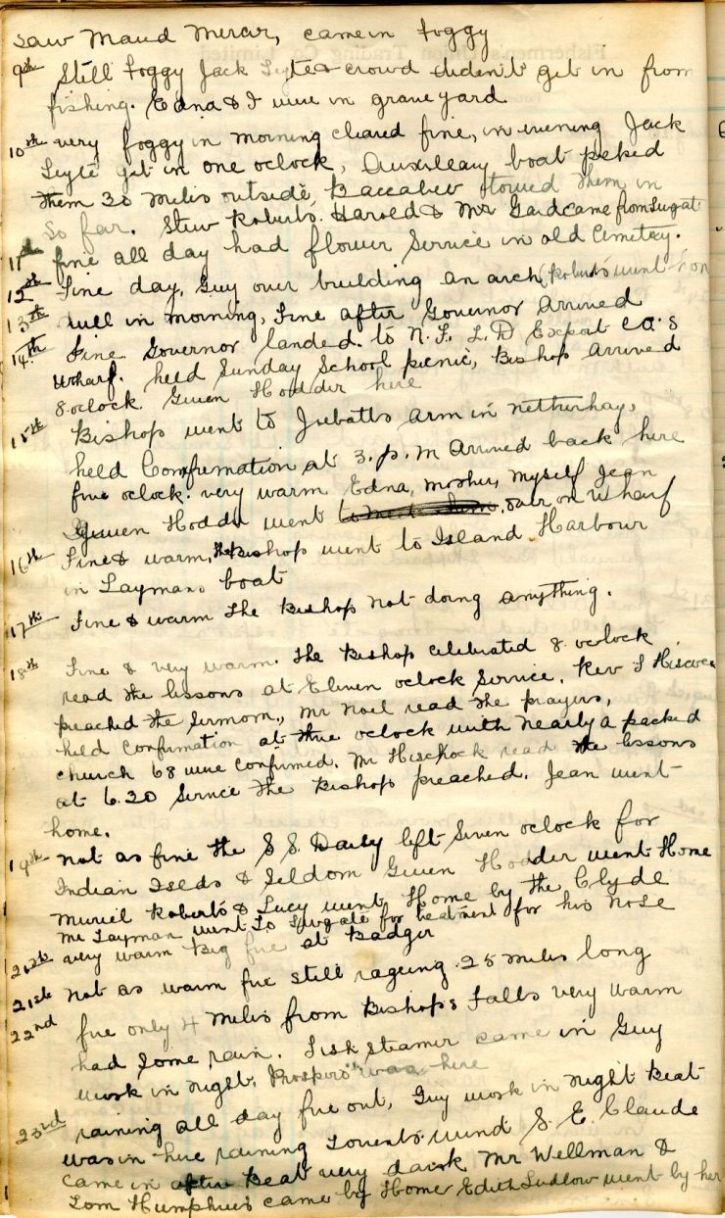 saw Maud Mercer, came in foggy
9th Still foggy Jack Leyte & crowd diden't get in from
fishing. Edna & I were in graveyard
10th very foggy in morning cleared fine, in evening Jack
Leyte got in one oclock, Auxileary boat picked
them 30 miles outside, Baccalieu towed them in
so far. Stew Roberts. Harold & Mr Gard came from Twigate
11th fine all day had flower Service in old Cemetey.
12th Fine day. Guy over building an arch, Roberts went
13th dull in morning, Fine after Governor arrived
14th Fine Governor landed. to N. F. L. D Export Co.s
wharf. held Sunday School picnic, Bishop arrived
8 oclock Gwen Hodder here
15th Bishop went to arm in netherhay,
held Comfirmation at 3. p. m arrived back here
five oclock. very warm Edna, mother, myself Jean
Gwen Hodder went over on wharf
16th Fine & warm, the Bishop went to Island Harbour
in Laymans boat
17th Fine & warm The Bishop not doing anything.
18th Fine & very warm. The Bishop celebrated 8 oclock
read the lessons at Eleven oclock Service. Rev
preached the Sermorn, Mr Noel read the prayers,
held Confirmation at three oclock with nearly a packed
church 68 were confirmed. Mr Hisckock read the lessons
at 6.30 Service the Bishop preached. Jean went
home.
19th not as fine the S S. Daisy left Seven oclock for
Indian Islds & Seldom Gwen Hodder went Home
Muriel Roberts & Lucy went Home by the Clyde
Mr Layman went to Twigate for treatment for his nose
20th very warm Big fire at Badger
21st not as warm fire still rageing 25 miles long
22nd fire only 4 miles from Bishops Falls very warm
had some rain. Fish Steamer came in Guy
work in night. Prospero was here
23rd raining all day fire out, Guy work in night Beat
was in here raining torrents wind S. E. Claude
came in after Beat very dark Mr Wellman &
Tom Humphries came by Home Edith Ludlow went by her